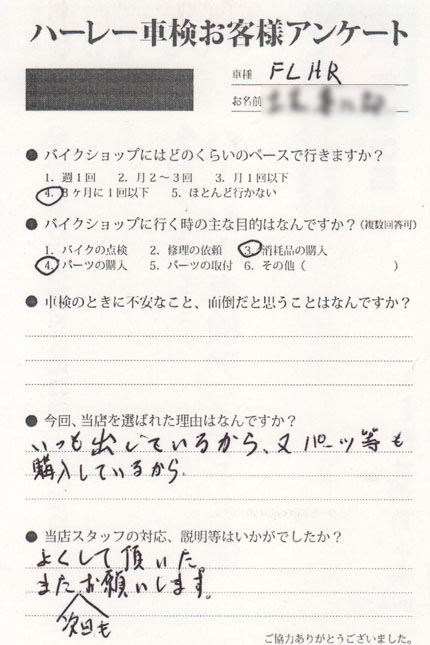 ハーレー車検お客様アンケート
車種 FLHR
お名前
● バイクショップにはどのくらいのペースで行きますか？
1. 週1回 2. 月2〜3回 3. 月1回以下
4. 3ヶ月に1回以下 5. ほとんど行かない
● バイクショップに行く時の主な目的はなんですか？（複数回答可）
1. バイクの点検 2. 修理の依頼 3. 消耗品の購入
4. パーツの購入 5. パーツの取付 6. その他（ ）
● 車検のときに不安なこと、面倒だと思うことはなんですか？
● 今回、当店を選ばれた理由はなんですか？
いつも出しているから、又パーツ等も
購入しているから.
● 当店スタッフの対応、説明等はいかがでしたか？
よくして頂いた。
またお願いします。
次回も
ご協力ありがとうございました。